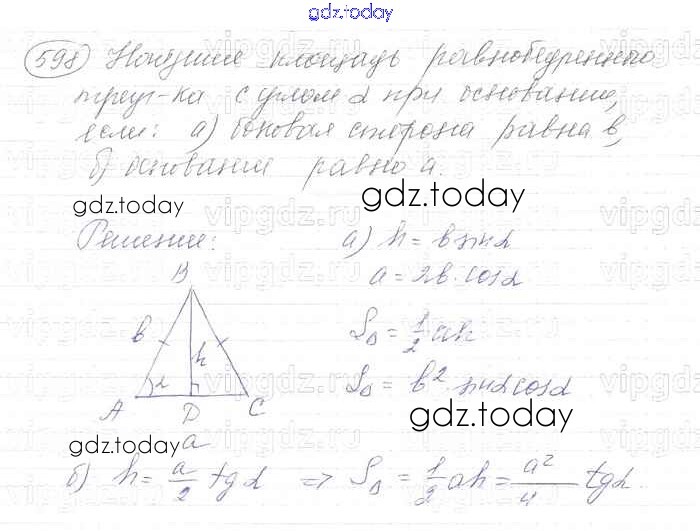 gdz.today
598) Найдите площадь равнобедренного
треуг-ка с углом α при основании,
если: а) боковая сторона равна в,
б) основание равно а.
gdz.today gdz.today
Решение: а) h = в sin α
a = 2в · cos α
B
в h
S△ = 1/2 ah
α
S△ = в² sin α cos α
A D C
gdz.today
gdz.today a
б) h = a/2 tg α ⇒ S△ = 1/2 ah = a²/4 tg α.
vipgdz.ru